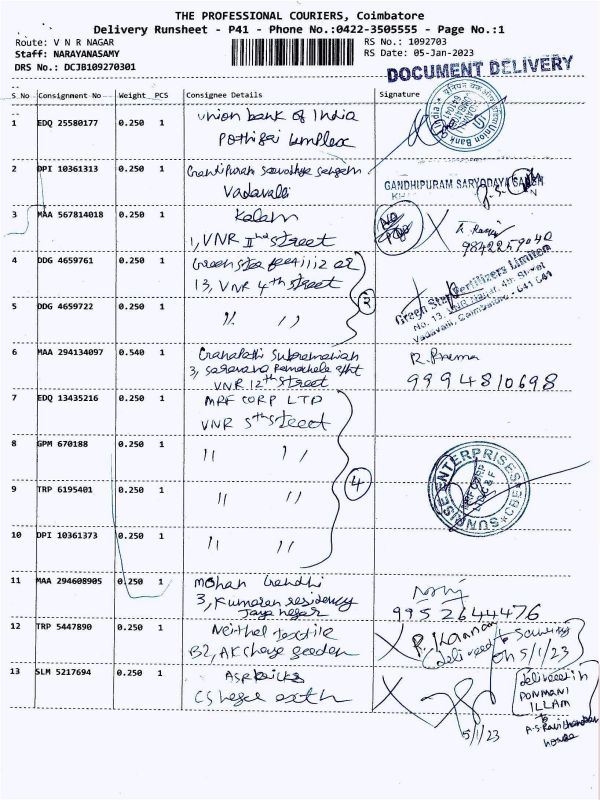 THE PROFESSIONAL COURIERS, Coimbatore
Delivery Runsheet - P41 - Phone No.:0422-3505555 - Page No.:1
Route: V N R NAGAR
RS No.: 1092703
Staff: NARAYANASAMY
RS Date: 05-Jan-2023
DRS No.: DCJB109270301
DOCUMENT DELIVERY
S.No Consignment No Weight PCS Consignee Details Signature
1 EDQ 25580177 0.250 1 Union bank of India
Pothigai Complex
Union Bank
2 DPI 10361313 0.250 1 Gandhipuram
Vadavalli
GANDHIPURAM SARVODAYA
3 MAA 567814018 0.250 1 Kalam
1, VNR IInd street
9842259040
4 DDG 4659761 0.250 1 Green star
13, VNR 4th street
Green Star Fertilizers Limited
No. 13, VNR Nagar, 4th Street
Vadavalli, Coimbatore - 641 041
5 DDG 4659722 0.250 1 〃 〃
2
6 MAA 294134097 0.540 1 Ganapathi Subramaniah
3,
VNR 12th street
R. Prema
9994810698
7 EDQ 13435216 0.250 1 MRF CORP LTD
VNR 5th street
8 GPM 670188 0.250 1 〃 〃
9 TRP 6195401 0.250 1 〃 〃
4
SUNRISE ENTERPRISES
MRF CORP
C & F
CBE
10 DPI 10361373 0.250 1 〃 〃
11 MAA 294608905 0.250 1 Mohan Gandhi
3, Kumaran residency
Jaya nagar
9952644476
12 TRP 5447890 0.250 1 Neithal textile
B2, AK
P. Kannan
delivered to
on 5/1/23
13 SLM 5217694 0.250 1 ASR bricks
5/1/23
delivered in
PONMANI
ILLAM
to
house